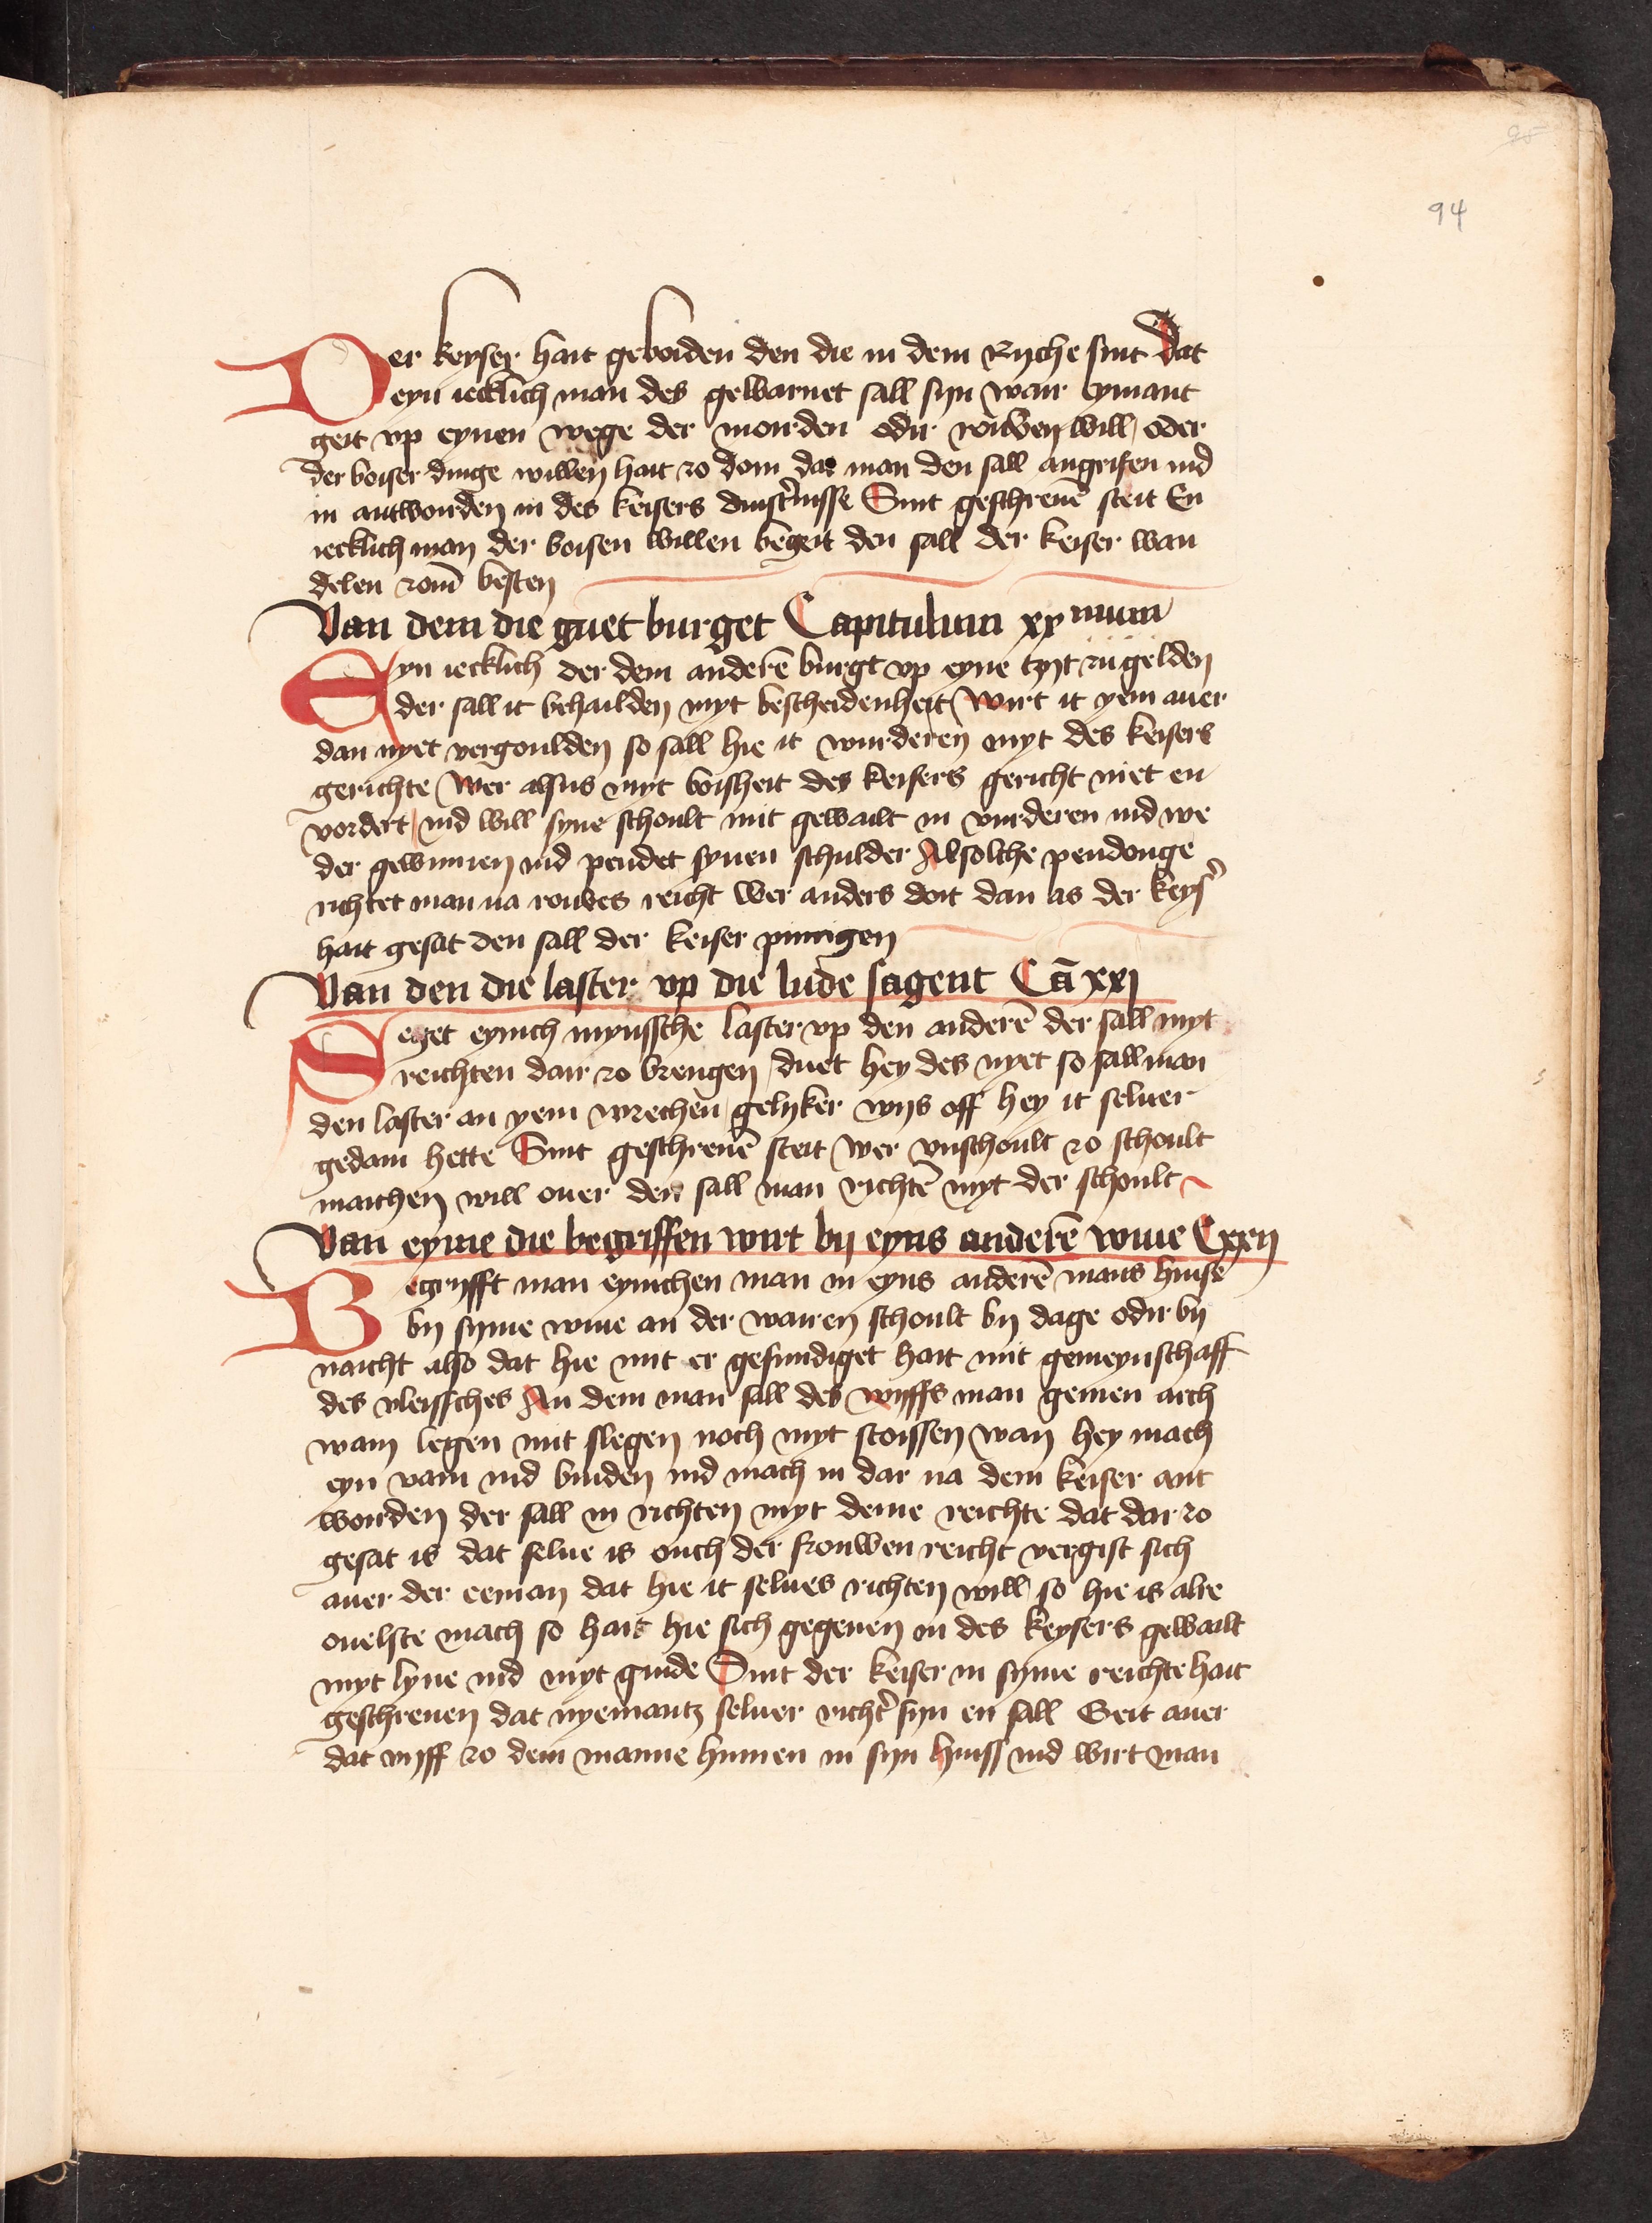 94
Der keyser hait geboiden den die in dem Ryche sint dat
eyn iecklich man des gewarnet sall syn wair eymant
geit vp eynen wege der morden odir rouben will oder
der boiser dinge willen hait zo doin dat man den sall angrifen ind
in antworden in des keisers dinst'nisse Sint geschreuē steit En
iecklich man der boisen willen begeit den sall der keiser wan
delen zom besten
Van dem die guet burget Capitulum xx mum
Eyn iecklich der dem anderē burgt vp eyne tzyt zu gelden
der sall it behailden myt bescheidenheit Wirt it yem auer
dan nyet vergoulden so sall hie it vurderen myt des keisers
gerichte Wer alsus myt boisheit des keisers gericht niet en
vordert ind will syne schoult mit gewailt in vurderen ind we
der gewinnen ind pendet synen schulder Alsolche pendonge
richtet man na roubes reicht wer anders doit dan as der keys'
hait gesat den sall der keiser pinigen
Van den die laster vp die lude sagent Cā xxi
Seget eynich mynssche laster vp den anderē der sall myt
reichten dair zo brengen duet hey des nyet so sall man
den laster an yem wrechen gelyker wijs off hey it seluer
gedain hette Sint geschreuē steit wer vnschoult zo schoult
maichen will ouer den sall man richtē myt der schoult
Van eyme die begriffen wirt by eyns anderē wiue Cxxij
Begryfft man eynichen man in eyns anderē mans huise
by syme wiue an der wairen schoult by dage odir by
naicht also dat hie mit er gesundiget hait mit gemeynschaff
des vleissches An dem man sall des wyffs man geinen arch
wain legen mit slegen noch myt stoissen wan hey mach
eyn vain ind binden ind mach in dar na dem keiser ant
worden der sall in richten myt deme reichte dat dar zo
gesat is dat selue is ouch der frouwen reicht vergist sich
auer der eeman dat hie it selues richten will so hie is alre
ouelste mach so hait hie sich gegeuen in des keysers gewailt
myt lyue ind myt guide Sint der keiser in syme reichte hait
geschreuen dat nyemantz seluer richt' syn en sall Geit auer
dat wyff zo dem manne hinnen in syn huiss ind wirt man